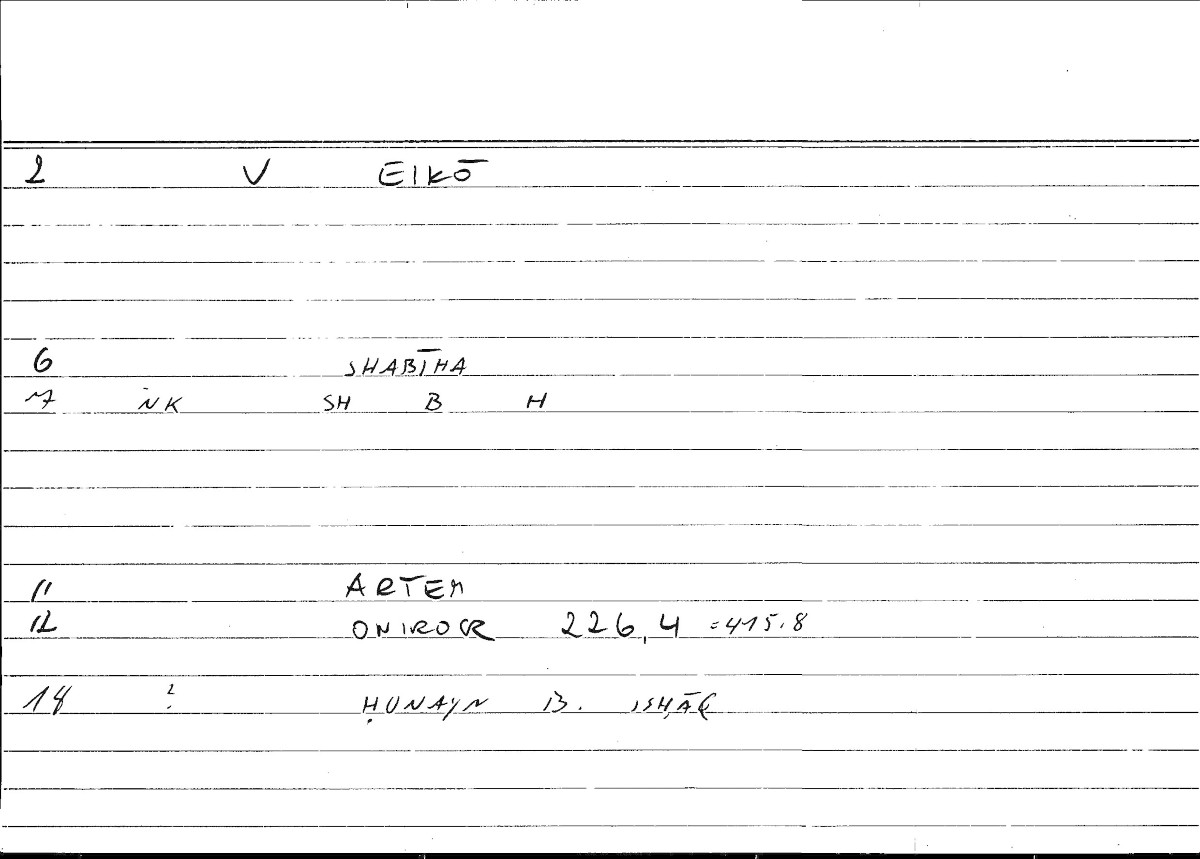 2 V EIKŌ
6 SHABĪHA
7 NK SH B H
11 ARTEM
12 ONIROCR 226,4 =415.8
18 ? ḤUNAYN B. ISḤĀQ